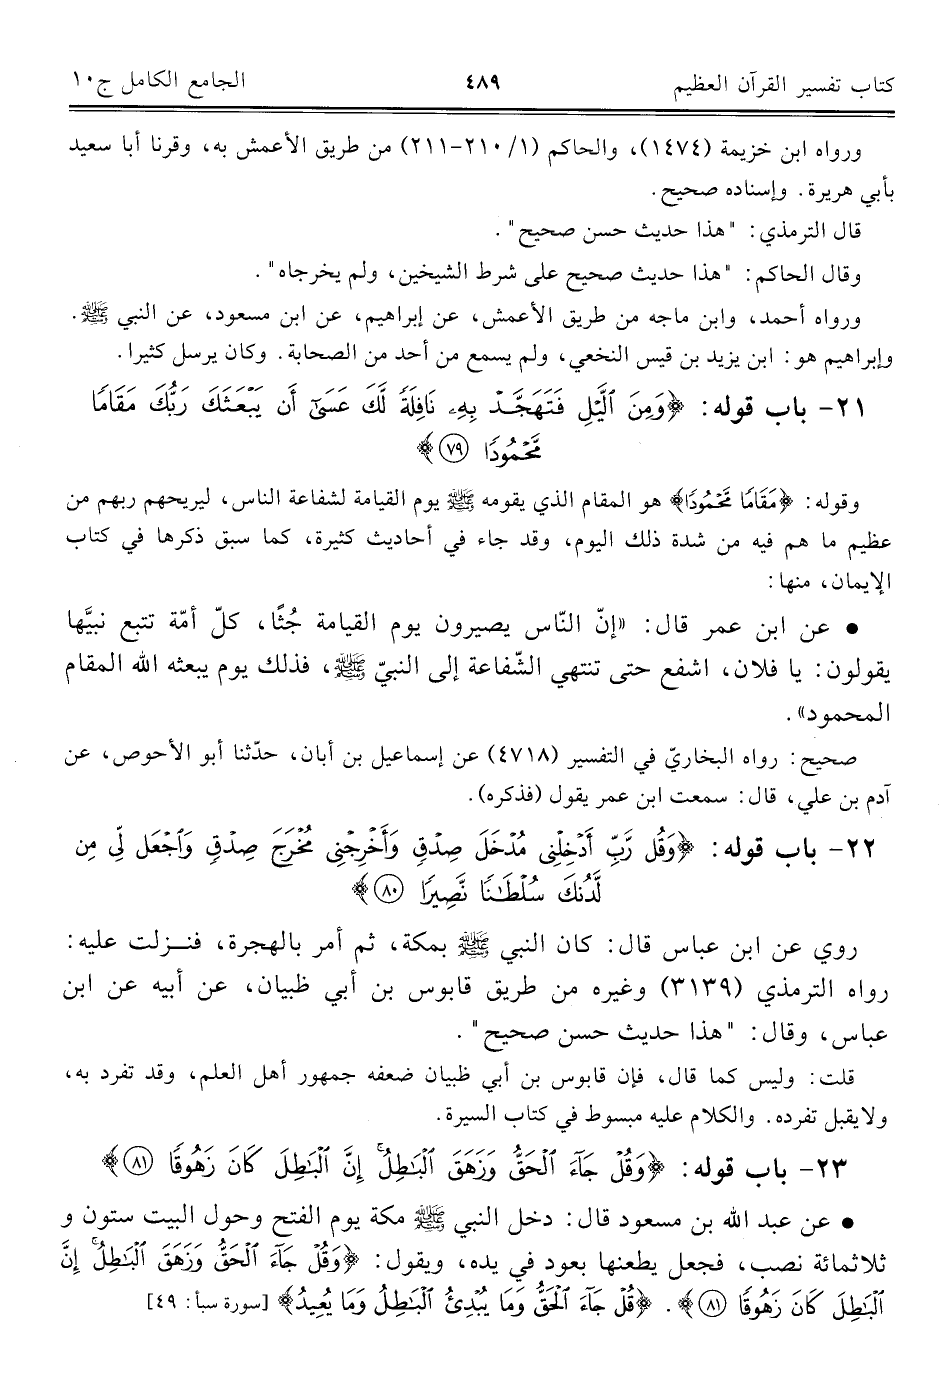 كتاب تفسير القرآن العظيم ٤٨٩ الجامع الكامل ج١٠
ورواه ابن خزيمة (١٤٧٤)، والحاكم (١/ ٢١٠-٢١١) من طريق الأعمش به، وقرنا أبا سعيد
بأبي هريرة. وإسناده صحيح.
قال الترمذي: "هذا حديث حسن صحيح".
وقال الحاكم: "هذا حديث صحيح على شرط الشيخين، ولم يخرجاه".
ورواه أحمد، وابن ماجه من طريق الأعمش، عن إبراهيم، عن ابن مسعود، عن النبي ﷺ.
وإبراهيم هو: ابن يزيد بن قيس النخعي، ولم يسمع من أحد من الصحابة. وكان يرسل كثيرا.
٢١- باب قوله: ﴿وَمِنَ ٱلَّيْلِ فَتَهَجَّدْ بِهِۦ نَافِلَةً لَّكَ عَسَىٰٓ أَن يَبْعَثَكَ رَبُّكَ مَقَامًا
مَّحْمُودًا ٧٩﴾
وقوله: ﴿مَقَامًا مَّحْمُودًا﴾ هو المقام الذي يقومه ﷺ يوم القيامة لشفاعة الناس، ليريحهم ربهم من
عظيم ما هم فيه من شدة ذلك اليوم، وقد جاء في أحاديث كثيرة، كما سبق ذكرها في كتاب
الإيمان، منها:
● عن ابن عمر قال: «إنّ النّاس يصيرون يوم القيامة جُثًا، كلّ أمّة تتبع نبيَّها
يقولون: يا فلان، اشفع حتى تنتهي الشّفاعة إلى النبيّ ﷺ، فذلك يوم يبعثه الله المقام
المحمود».
صحيح: رواه البخاريّ في التفسير (٤٧١٨) عن إسماعيل بن أبان، حدّثنا أبو الأحوص، عن
آدم بن علي، قال: سمعت ابن عمر يقول (فذكره).
٢٢- باب قوله: ﴿وَقُل رَّبِّ أَدْخِلْنِى مُدْخَلَ صِدْقٍ وَأَخْرِجْنِى مُخْرَجَ صِدْقٍ وَٱجْعَل لِّى مِن
لَّدُنكَ سُلْطَٰنًا نَّصِيرًا ٨٠﴾
روي عن ابن عباس قال: كان النبي ﷺ بمكة، ثم أمر بالهجرة، فنـزلت عليه:
رواه الترمذي (٣١٣٩) وغيره من طريق قابوس بن أبي ظبيان، عن أبيه عن ابن
عباس، وقال: "هذا حديث حسن صحيح".
قلت: وليس كما قال، فإن قابوس بن أبي ظبيان ضعفه جمهور أهل العلم، وقد تفرد به،
ولايقبل تفرده. والكلام عليه مبسوط في كتاب السيرة.
٢٣- باب قوله: ﴿وَقُلْ جَآءَ ٱلْحَقُّ وَزَهَقَ ٱلْبَٰطِلُ ۚ إِنَّ ٱلْبَٰطِلَ كَانَ زَهُوقًا ٨١﴾
● عن عبد الله بن مسعود قال: دخل النبي ﷺ مكة يوم الفتح وحول البيت ستون و
ثلاثمائة نصب، فجعل يطعنها بعود في يده، ويقول: ﴿وَقُلْ جَآءَ ٱلْحَقُّ وَزَهَقَ ٱلْبَٰطِلُ ۚ إِنَّ
ٱلْبَٰطِلَ كَانَ زَهُوقًا ٨١﴾. ﴿قُلْ جَآءَ ٱلْحَقُّ وَمَا يُبْدِئُ ٱلْبَٰطِلُ وَمَا يُعِيدُ﴾ [سورة سبأ: ٤٩]